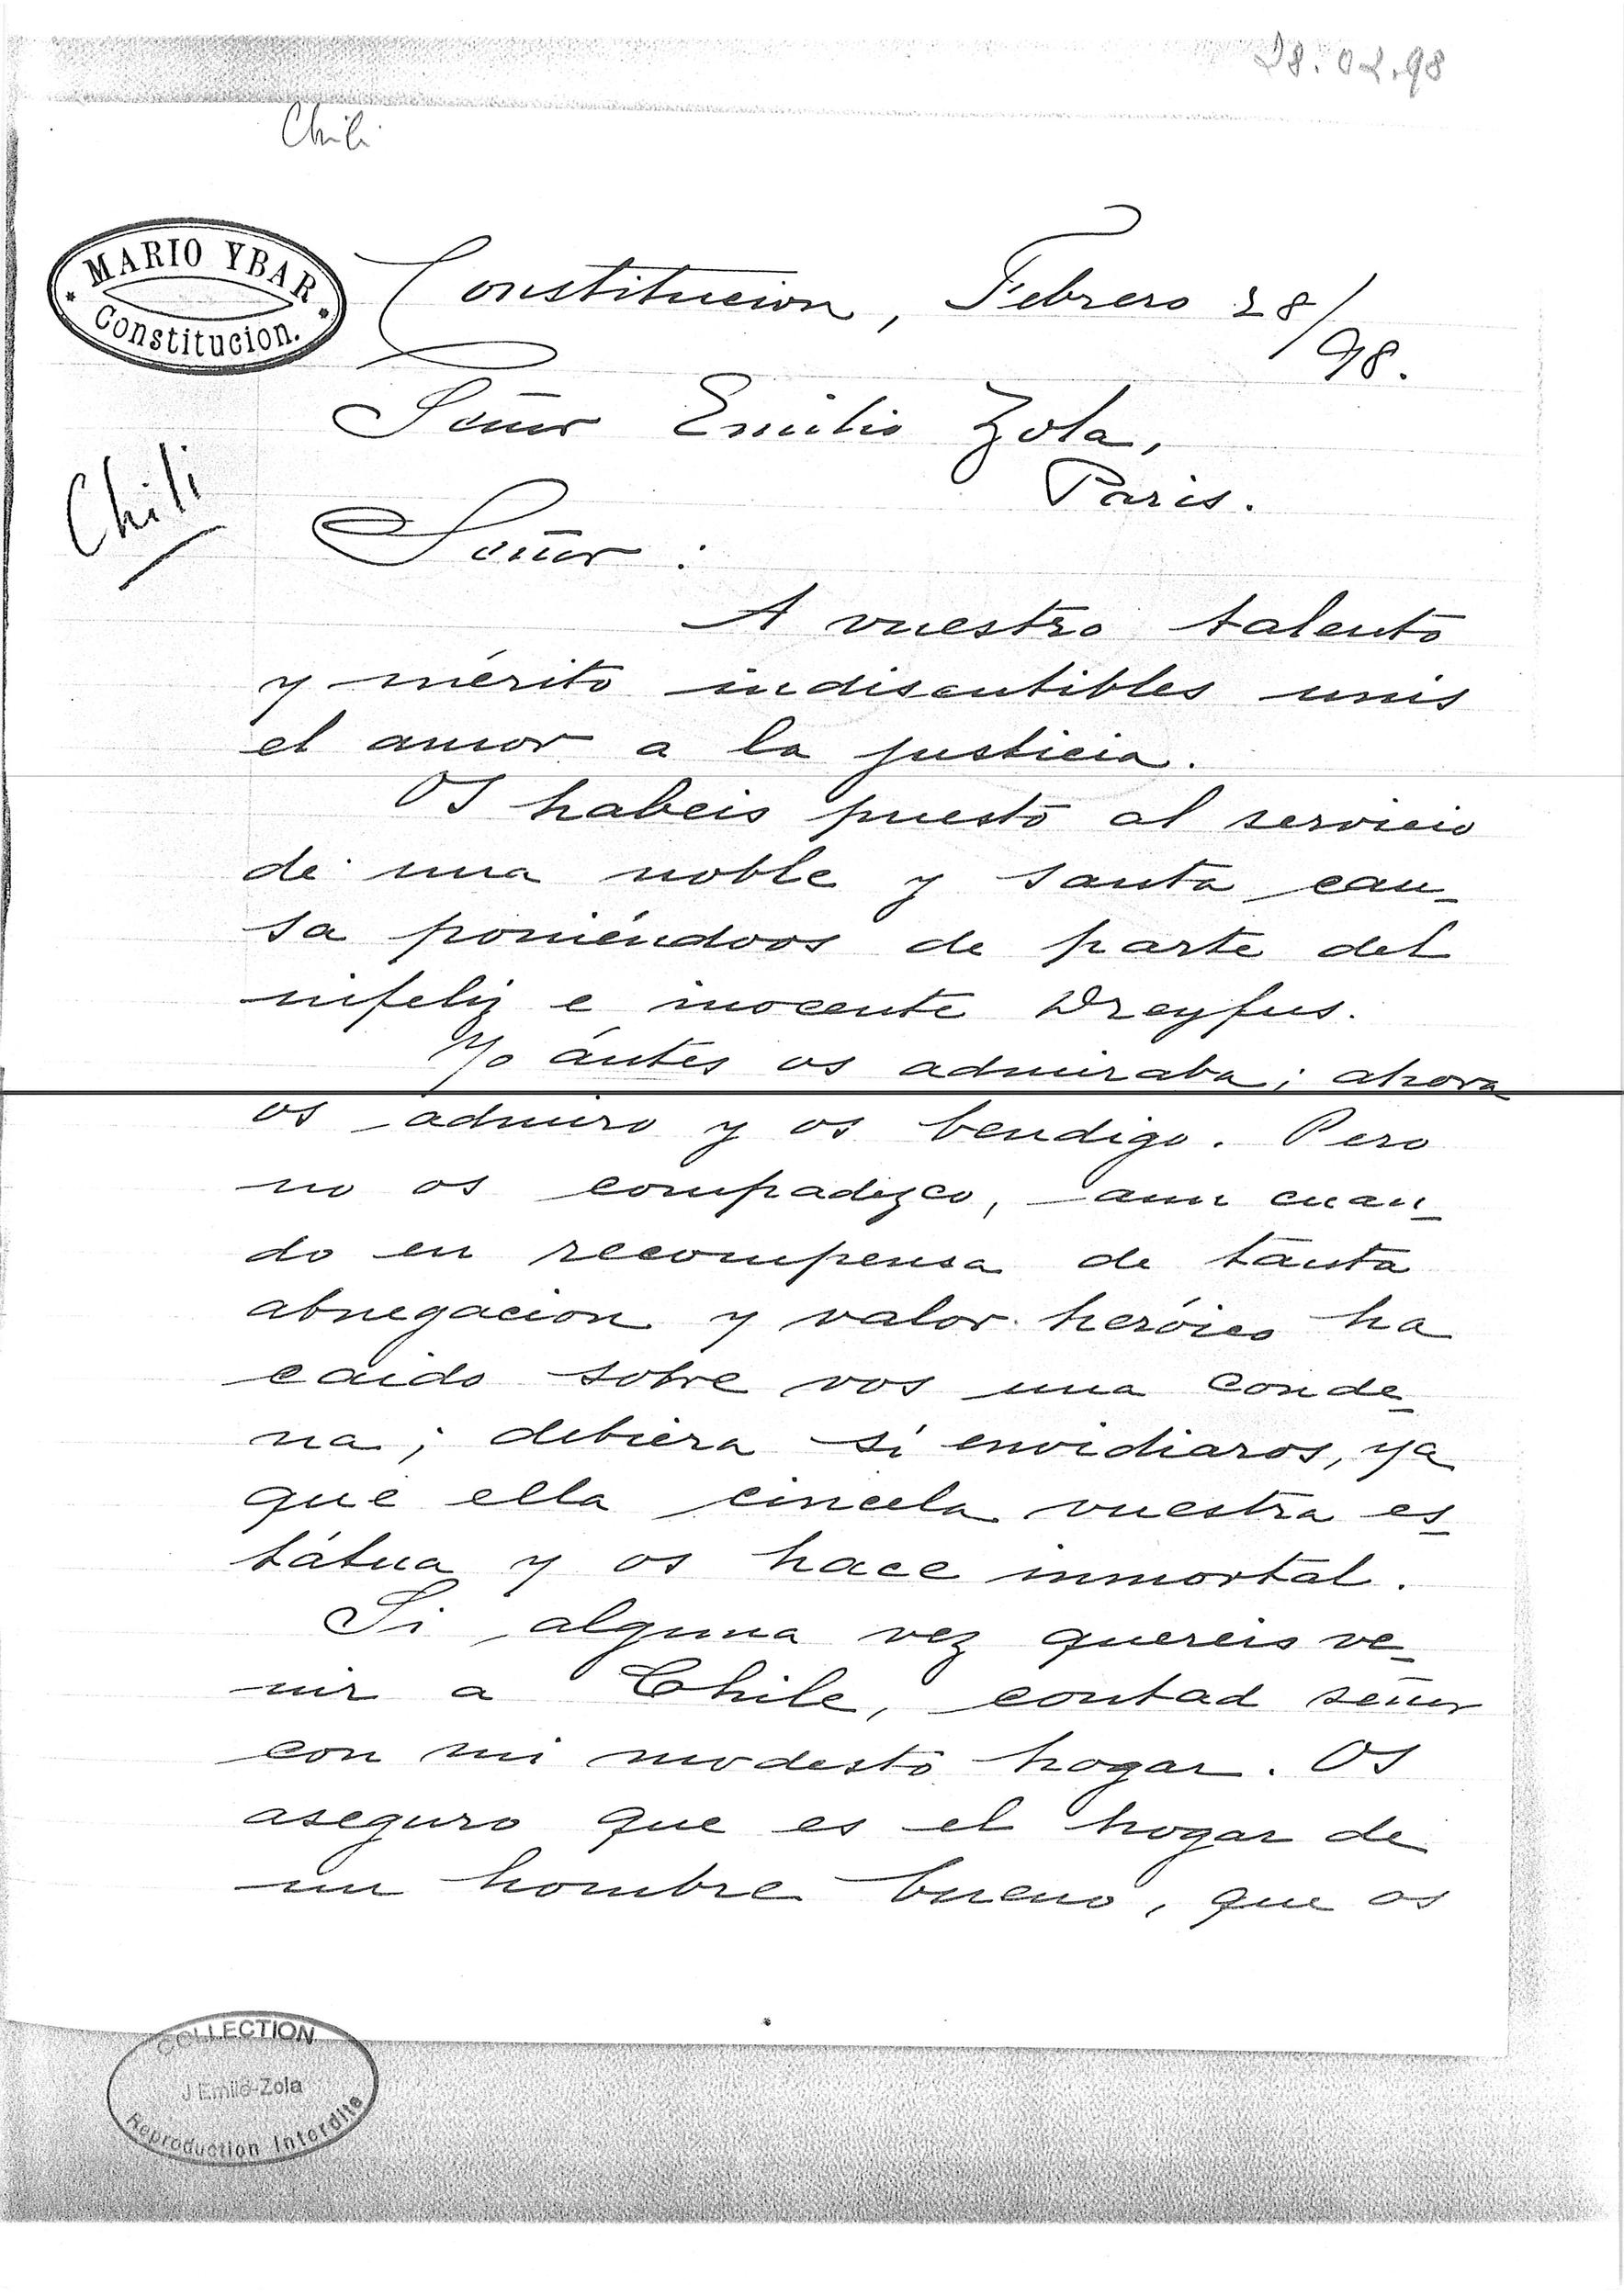 28.02.98
Chili
MARIO YBAR
Constitucion.
Constitucion, Febrero 28/98.
Señor Emilio Zola,
Paris.
Chili
Señor:
A vuestro talento
y mérito indiscutibles unis
el amor a la justicia.
Os habeis puesto al servicio
de una noble y santa cau-
sa poniéndoos de parte del
infeliz e inocente Dreyfus.
Yo ántes os admiraba; ahora
os admiro y os bendigo. Pero
no os compadezco, aun cuan-
do en recompensa de tanta
abnegacion y valor heróico ha
caido sobre vos una conde-
na; debiera sí envidiaros, ya
que ella cincela vuestra es-
tátua y os hace inmortal.
Si alguna vez quereis ve-
nir a Chile, contad señor
con mi modesto hogar. Os
aseguro que es el hogar de
un hombre bueno, que os
COLLECTION
J Emile-Zola
Reproduction Interdite